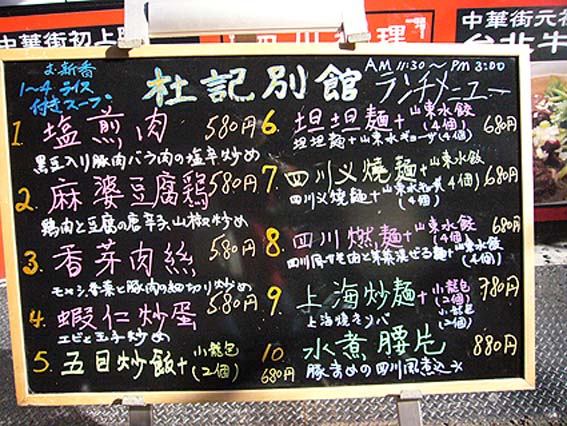 中華街初上陸
四川料理
中華街元祖
台北牛
お新香
1～4 ライス
付き スープ。
杜記別館
AM 11:30～PM 3:00
ランチメニュー
1. 塩煎肉 580円
黒豆入り豚肉バラ肉の塩辛炒め
2. 麻婆豆腐鶏 580円
鶏肉と豆腐の唐辛子、山椒炒め
3. 香芽肉絲 580円
豚肉の細切り炒め
4. 蝦仁炒蛋 580円
エビと玉子炒め
5. 五目炒飯+小籠包(2個) 680円
6. 坦坦麺+山東水餃(4個) 680円
坦坦麺+山東水ギョーザ(4個)
7. 四川义焼麺+山東水餃(4個) 680円
四川义焼麺+山東水ギョーザ(4個)
8. 四川燃麺+山東水餃(4個) 680円
麺+山東水餃(4個)
9. 上海炒麺+小籠包(2個) 780円
上海焼きソバ+小籠包(2個)
10. 水煮腰片 880円
豚まめの四川風煮込み